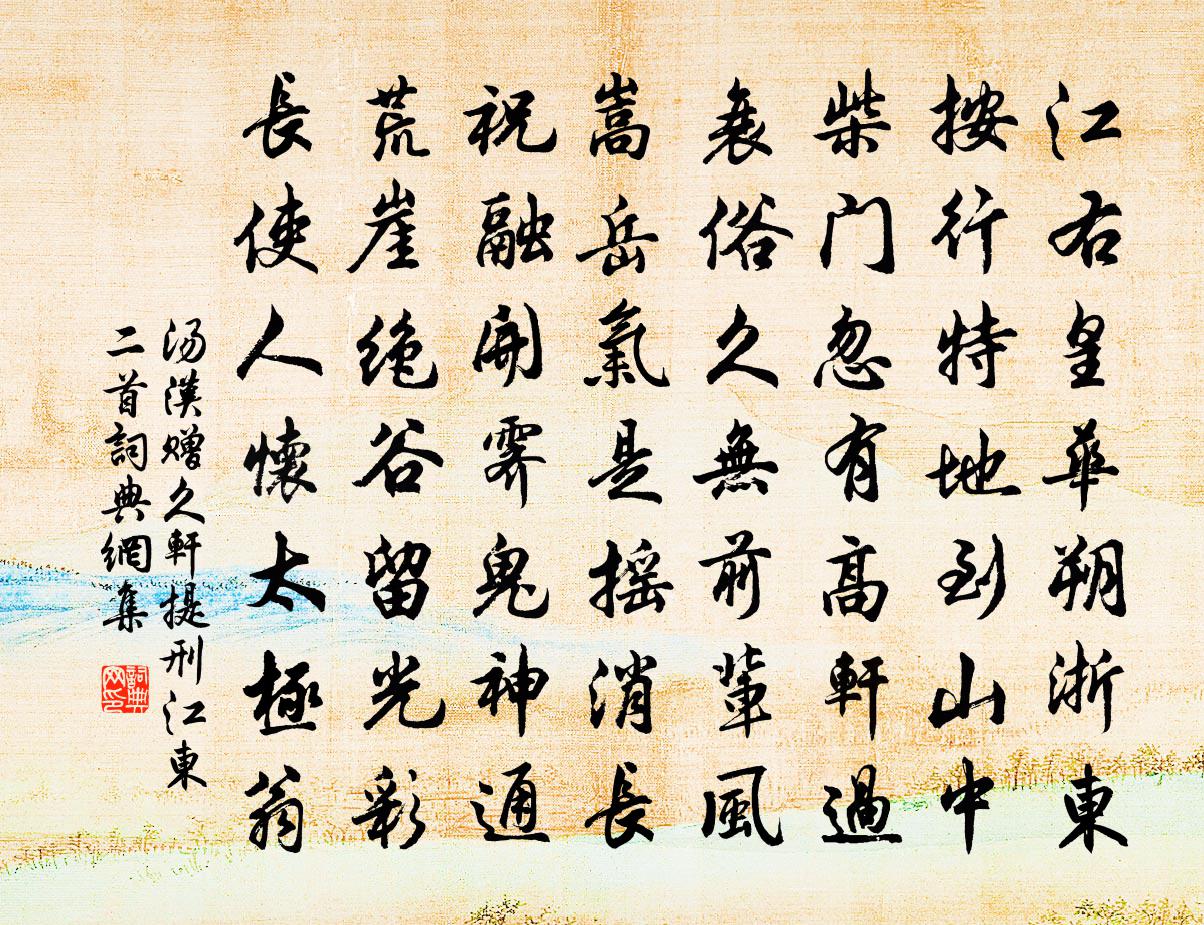 江右皇華朔浙東
按行特地到山中
柴門忽有高軒過
衰俗久無前輩風
嵩岳氣是摇消長
祝融開霽鬼神通
荒崖绝谷留光彩
長使人懷太極翁
汤漢赠久軒提刑江東
二首詞典網集
詞典网印